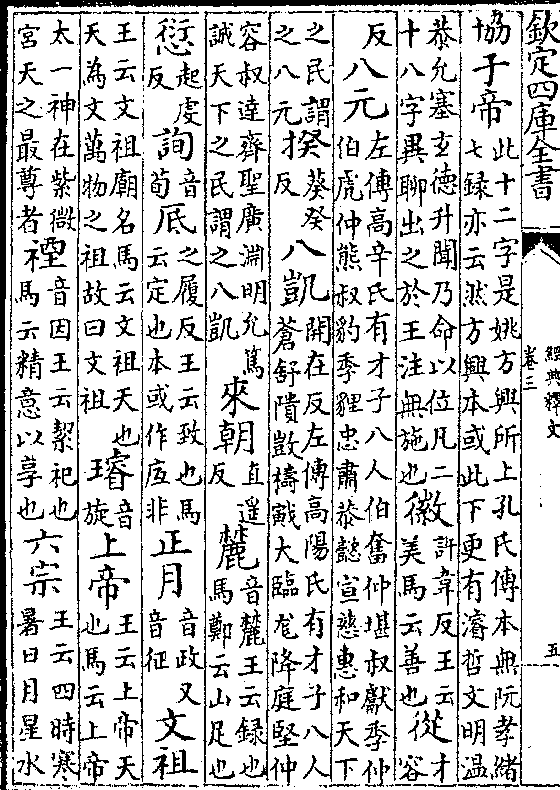 欽定四庫全書
經典釋文
卷三
五
協于帝此十二字是姚方興所上孔氏傳本無阮孝緒七録亦云然方興本或此下更有濬哲文明温
恭允塞玄德升聞乃命以位凡二十八字異聊出之於王注無施也徽許韋反王云美馬云善也從才容
反八元左傳高辛氏有才子八人伯奮仲堪叔獻季仲伯虎仲熊叔豹季貍忠肅恭懿宣慈惠和天下
之民謂之八元揆葵癸反八凱開在反左傳高陽氏有才子八人蒼舒隤敳檮戭大臨尨降庭堅仲
容叔達齊聖廣淵明允篤誠天下之民謂之八凱來朝直遥反麓音麓王云録也馬鄭云山足也
愆起虔反詢音荀厎之履反王云致也馬云定也本或作庢非正月音政又音征文祖
王云文祖廟名馬云文祖天也天為文萬物之祖故曰文祖璿音旋上帝王云上帝天也馬云上帝
太一神在紫微宫天之最尊者禋音因王云絜祀也馬云精意以享也六宗王云四時寒暑日月星水